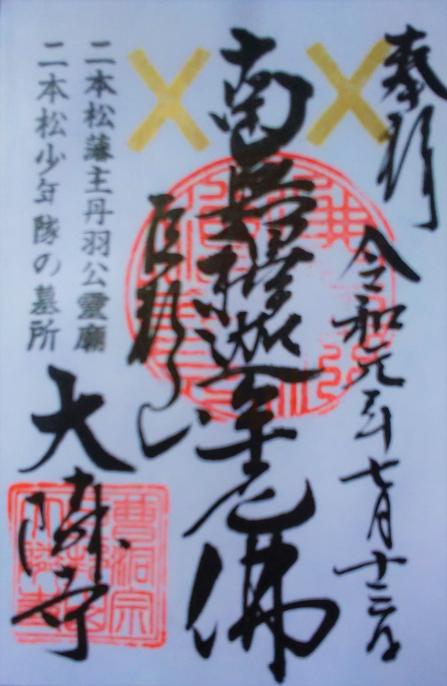 奉拝
令和元年七月十二日
南無釋迦牟尼佛
巨邦山
二本松藩主丹羽公霊廟
二本松少年隊の墓所
大隣寺
曹洞宗